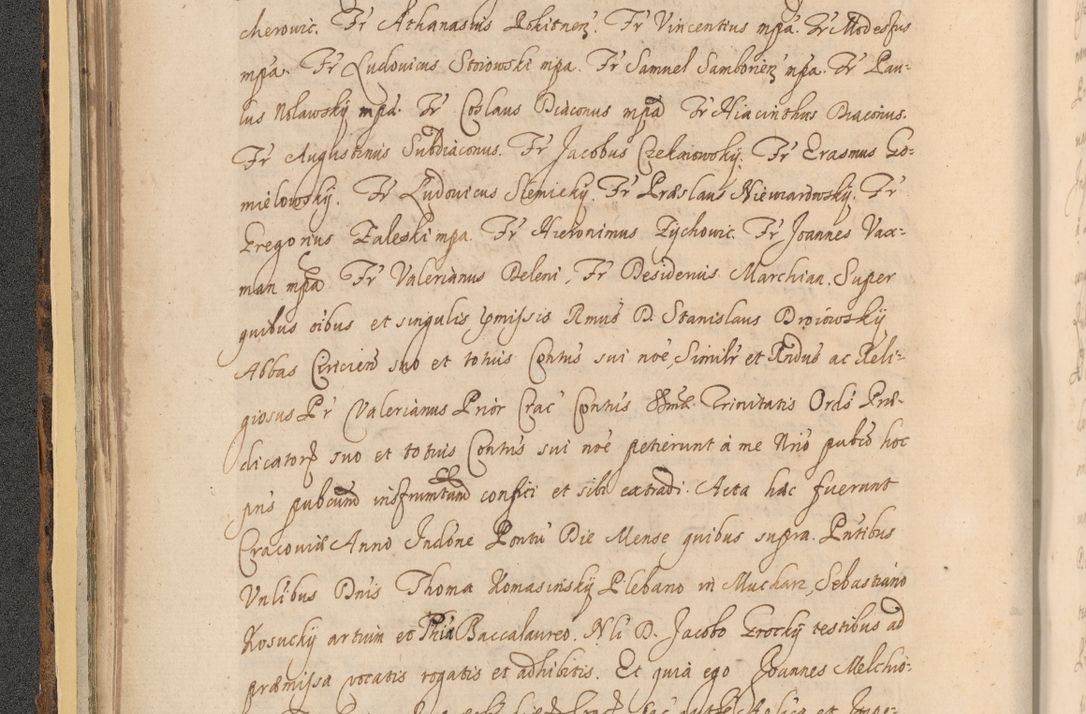 cherowic. Fr Athanasius Pokitnen. Fr Vincentius mpa. Fr Modestus
mpa. Fr Ludovicus Stoiowski mpa. Fr Samuel Samborien mpa. Fr Pau-
lus Nolawsky mpa. Fr Coslaus Diaconus mpa Fr Hiacinthus Diaconus.
Fr Augustinus Subdiaconus. Fr Jacobus Czekniowsky. Fr Erasmus Go-
mielowsky. Fr Ludovicus Slemicky. Fr Præslaus Niewiarowsky. Fr
Gregorius Zaleski mpa. Fr Hieronimus Zychowic. Fr Joannes Vax-
man mpa Fr Valerianus Beleni, Fr Desiderius Marchian. Super
quibus oibus et singulis pmissis Rmus D. Stanislaus Droiowskij
Abbas suo et totuis Contus sui noe, Similr et Rndus ac Reli-
giosus Pr Valerianus Prior Crac Contus SSmæ Trinitatis Ords Præ-
dicator suo et totuis Contus sui noe petierunt à me Nrio pubco hoc
pns pubcum insfrumtum confici et sibi extradi. Acta hæc fuerunt
Cracoviæ Anno Indone Pontu Die Mense quibus supra. Pntibus
Vnlibus Dnis Thoma Komasinsky Plebano in Mucharz, Sebastiano
Kosucky artium et Phiæ Baccalaureo. Nli D. Jacobo Grocky testibus ad
præmissa vocatis rogatis et adhibitis. Et quia ego Joannes Melchio-